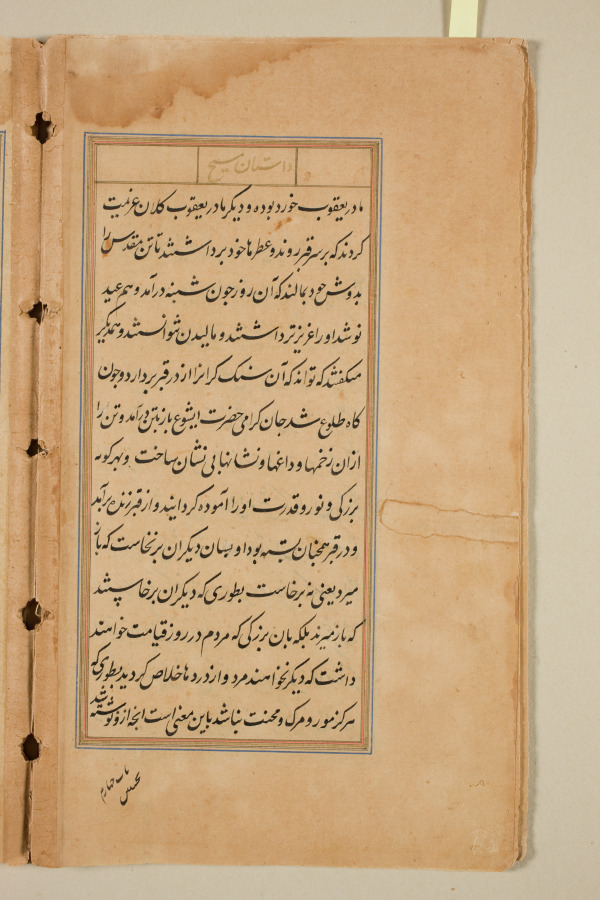 داستان مسیح
مادر یعقوب خورد بوده و دیگر مادر یعقوب کلان عزیمت
کردند که بر سر قبر روند و عطرها خود برداشتند تا تن مقدس را
بدوش خود بمالند که آن روز چون شبنه درآمد و هم عید
نو شد او را عزیزتر داشتند و مالیدن نتوانستند و همدیگر
میگفتند که تواند که آن سنک کرانرا از در قبر بردارد و چون
کاه طلوع شد جان کرامی حضرت ایشوع باز بتن درآمد و تن را
ازان زخمها و داغها و نشانهابی نشان ساخت و بهر کونه
بزرکی و نور و قدرت او را آموده کردانیند و از قبر زنده برآمد
و در قبر همچنان بسته بود او بسان دیگران برنخاست که باز
میرد یعنی نه برخاست بطوری که دیکران برخاستند
که باز میرند بلکه بان بزرکی که مردم در روز قیامت خواهند
داشت که دیکر نخواهند مرد و از دردها خلاص کردید بطوری که
هرکز مور و مرک و محنت نباشد باین معنی است انچه ازو نوشته شد
باب چهارم